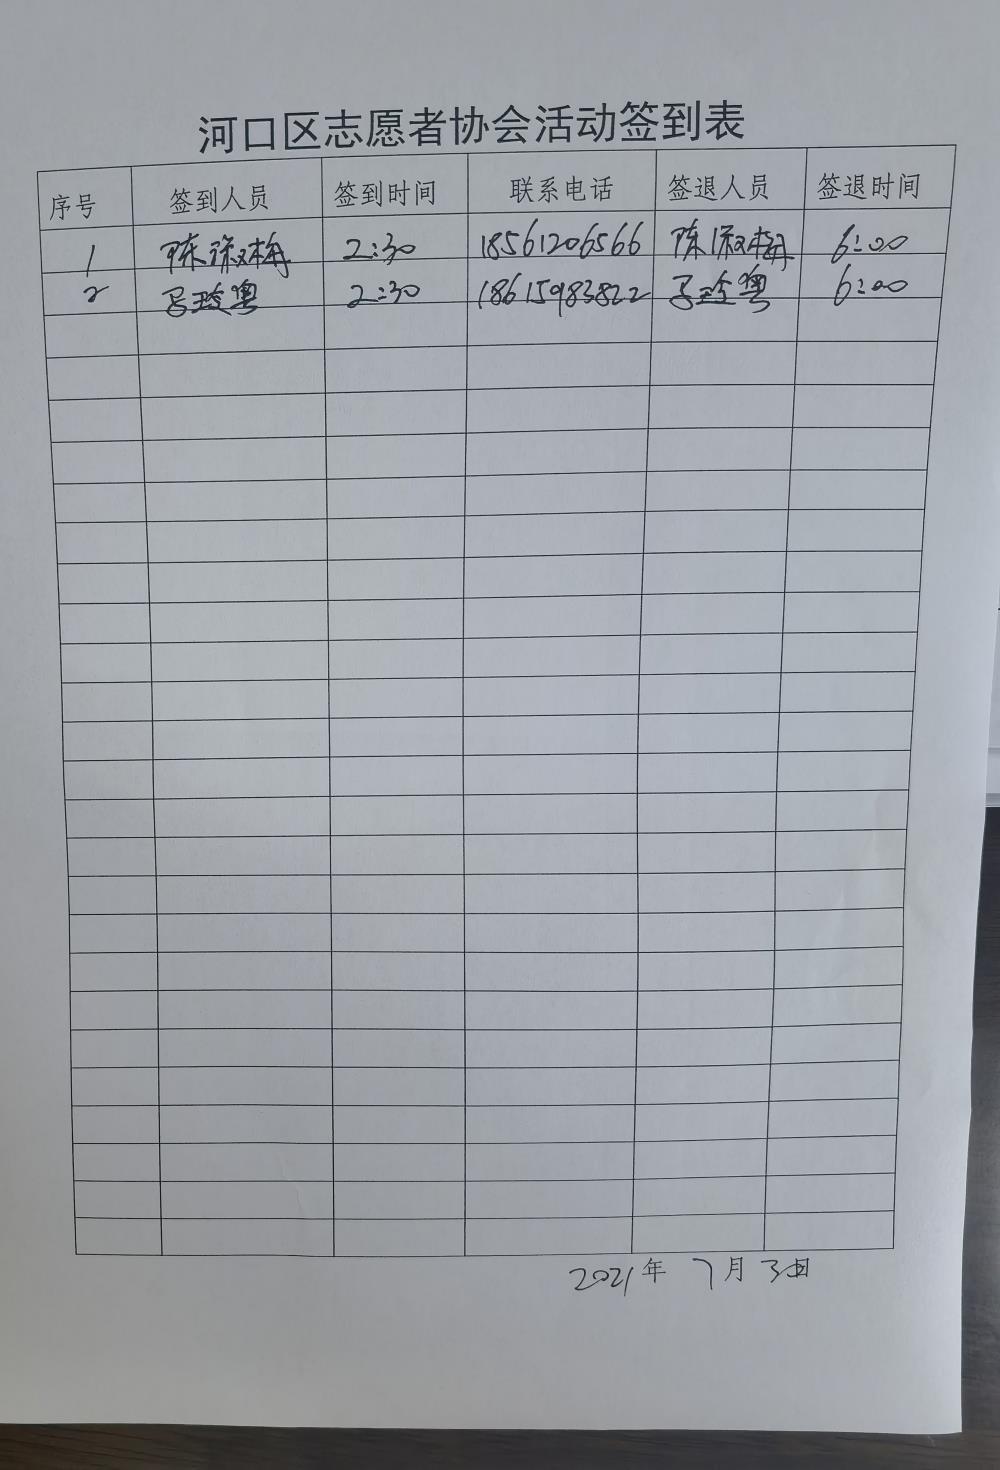 河口区志愿者协会活动签到表
序号 签到人员 签到时间 联系电话 签退人员 签退时间
1 陈淑梅 2:30 18561206566 陈淑梅 6:00
2 2:30 18615983822 6:00
2021年 7月 3日